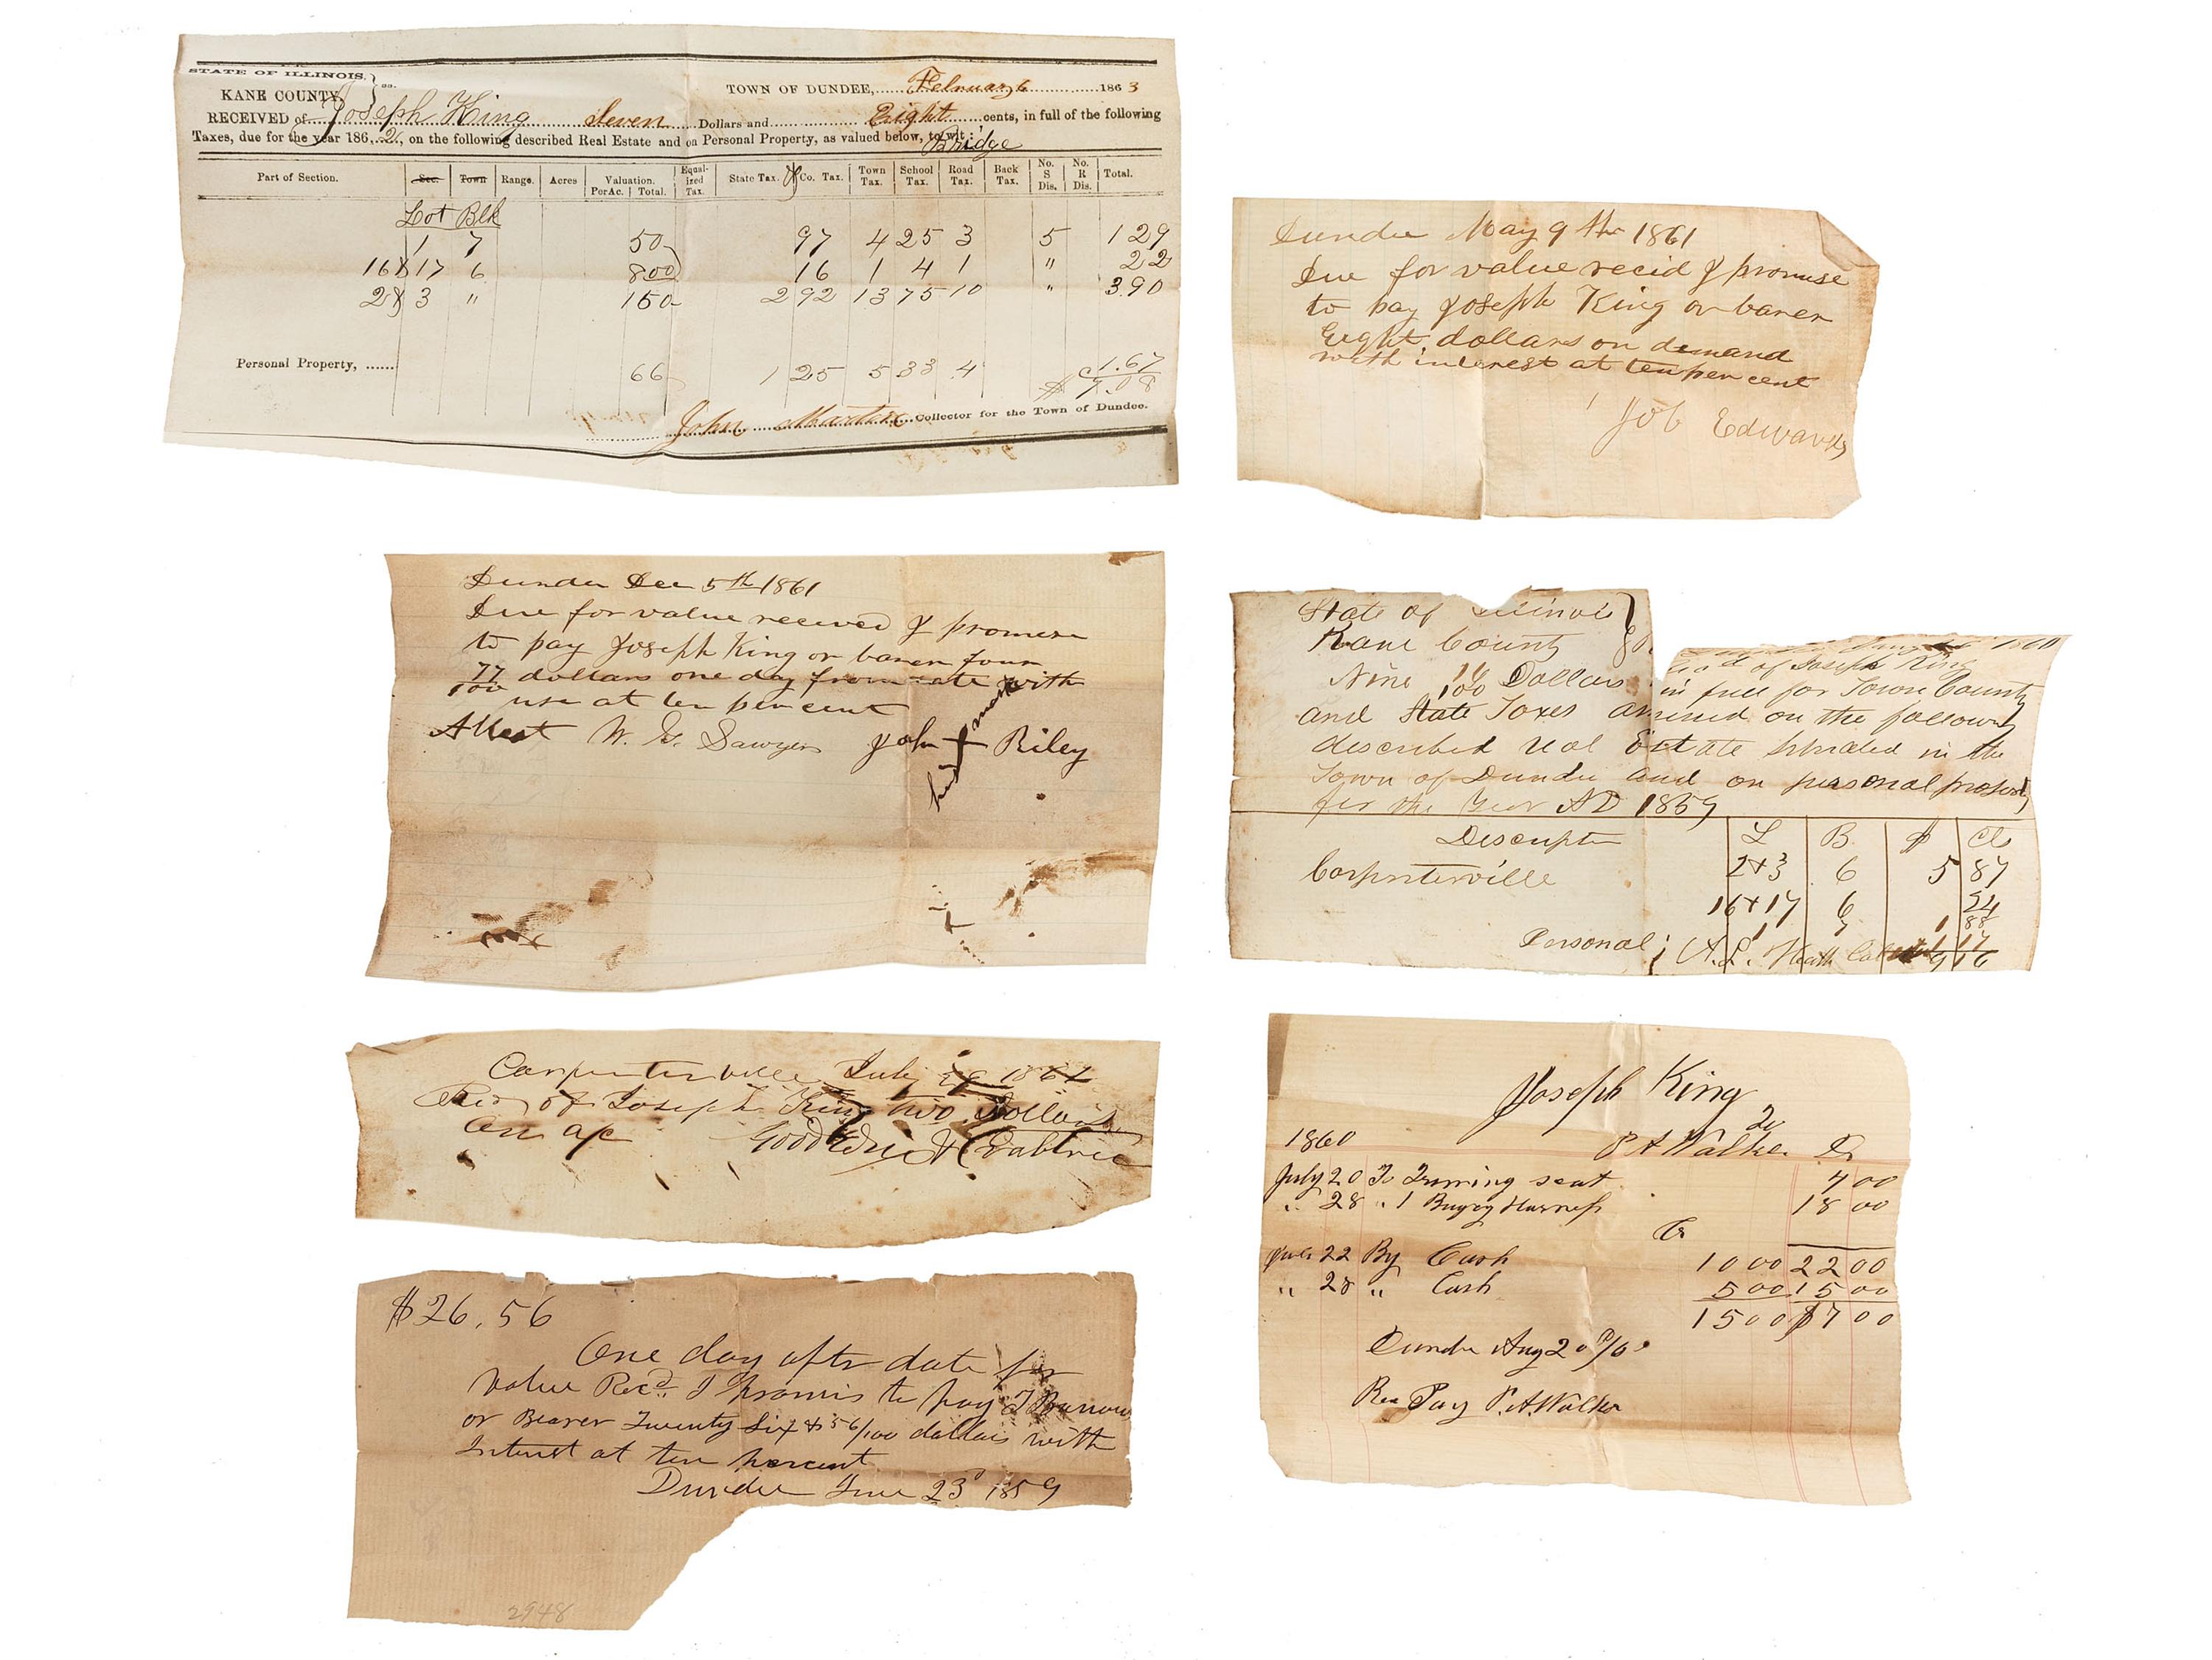 STATE OF ILLINOIS, } ss.
KANE COUNTY, TOWN OF DUNDEE, February 6 1863
RECEIVED of Joseph King Seven Dollars and Eight cents, in full of the following
Taxes, due for the year 1862, on the following described Real Estate and on Personal Property, as valued below, to wit:
Bridge
Part of Section. Sec. Town Range. Acres Valuation. PerAc. Total. Equalized Tax. State Tax. & Co. Tax. Town Tax. School Tax. Road Tax. Back Tax. No. S Dis. No. R Dis. Total.
Lot Blk
1 7 50 97 4 25 3 5 1 29
16 & 17 6 800 16 1 4 1 " 22
2 & 3 " 150 2 92 13 75 10 " 3.90
Personal Property, ...... 66 1 25 5 33 4 1.67
$ 7.08
John Martin Collector for the Town of Dundee.
Dundee May 9th 1861
Due for value recid I promise
to pay Joseph King or barer
Eight dollars on demand
with interest at ten per cent
Job Edwards
Dundee Dec 5th 1861
Due for value received I promise
to pay Joseph King or barer four
77/100 dollars one day from date with
use at ten per cent
Attest W. G. Sawyer John his + mark Riley
State of Illinois }
Kane County
of Joseph King
Nine 16/100 Dollars in full for Town County
and State Taxes on the following
described real Estate situated in the
Town of Dundee and on personal property
for the Year AD 1859
Descriptn L B. $ Cts
Carpenterville 2+3 6 5 87
16+17 6 24
1 7 1 88
Personal; 1 17
A. L. Heath 9 16
Carpenterville July 1861
Recd of Joseph King two Dollars
on a/c Goodwin & Crabtree
Joseph King
1860 P A Walker Dr
July 20 To Triming seat 4 00
" 28 " 1 Bugey Harness 18 00
Cr
July 22 By Cash 10 00 22 00
" 28 " Cash 5 00 15 00
15 00 $7 00
Dundee Aug 20th/60
Rec Pay P. A. Walker
$26.56
One day aftr date for
Value Recd. I promis to pay T Barrows
or Bearer Twenty Six & 56/100 dollars with
Interest at ten percent
Dundee June 23d 1859
2948